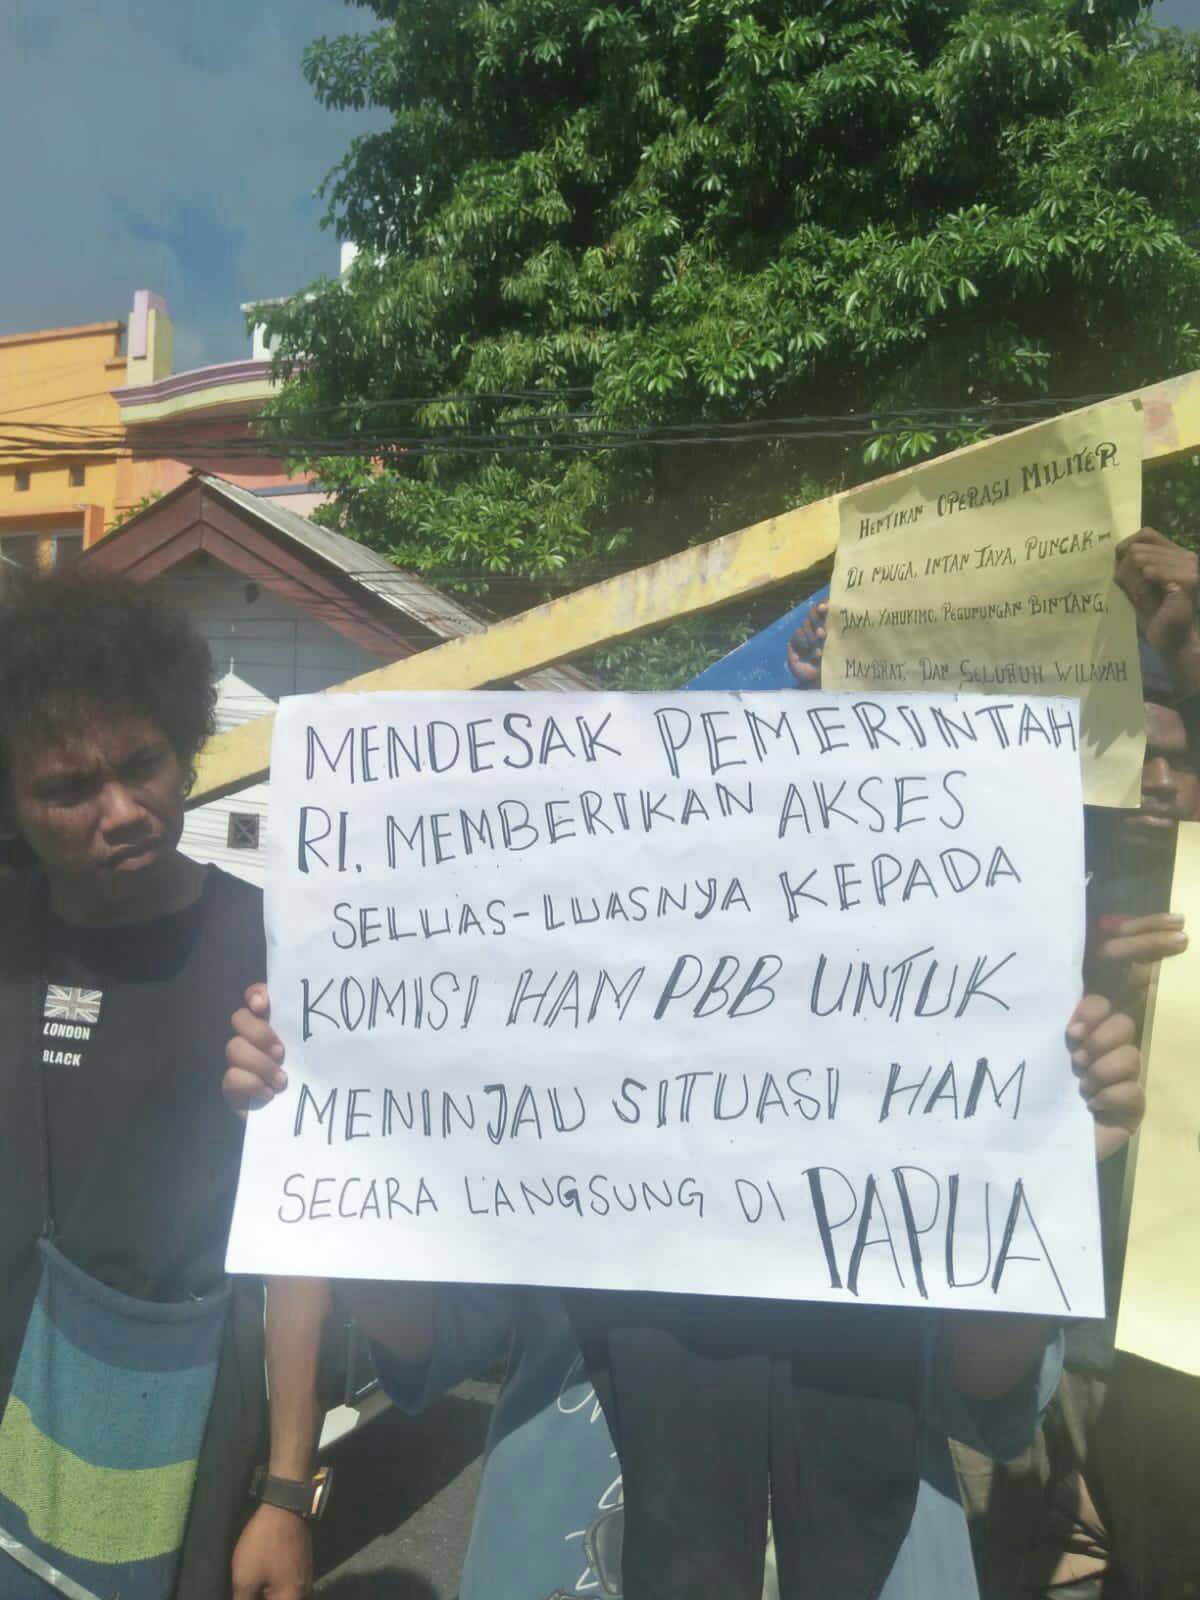 HENTIKAN OPERASI MILITER
DI NDUGA, INTAN JAYA, PUNCAK
JAYA, YAHUKIMO, PEGUNUNGAN BINTANG,
MAYBRAT, DAN SELURUH WILAYAH
MENDESAK PEMERINTAH
RI. MEMBERIKAN AKSES
SELUAS-LUASNYA KEPADA
KOMISI HAM PBB UNTUK
MENINJAU SITUASI HAM
SECARA LANGSUNG DI PAPUA
LONDON
BLACK